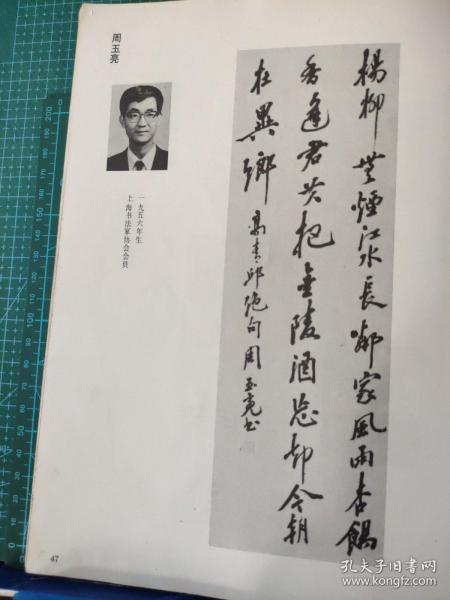 周玉亮
一九五六年生
上海书法家协会会员
楊柳無煙江水長鄰家風雨杏餳
香逢君共把金陵酒忘却今朝
在異鄉 高青邱絕句周玉亮書
47
孔夫子旧书网
www.kongfz.com